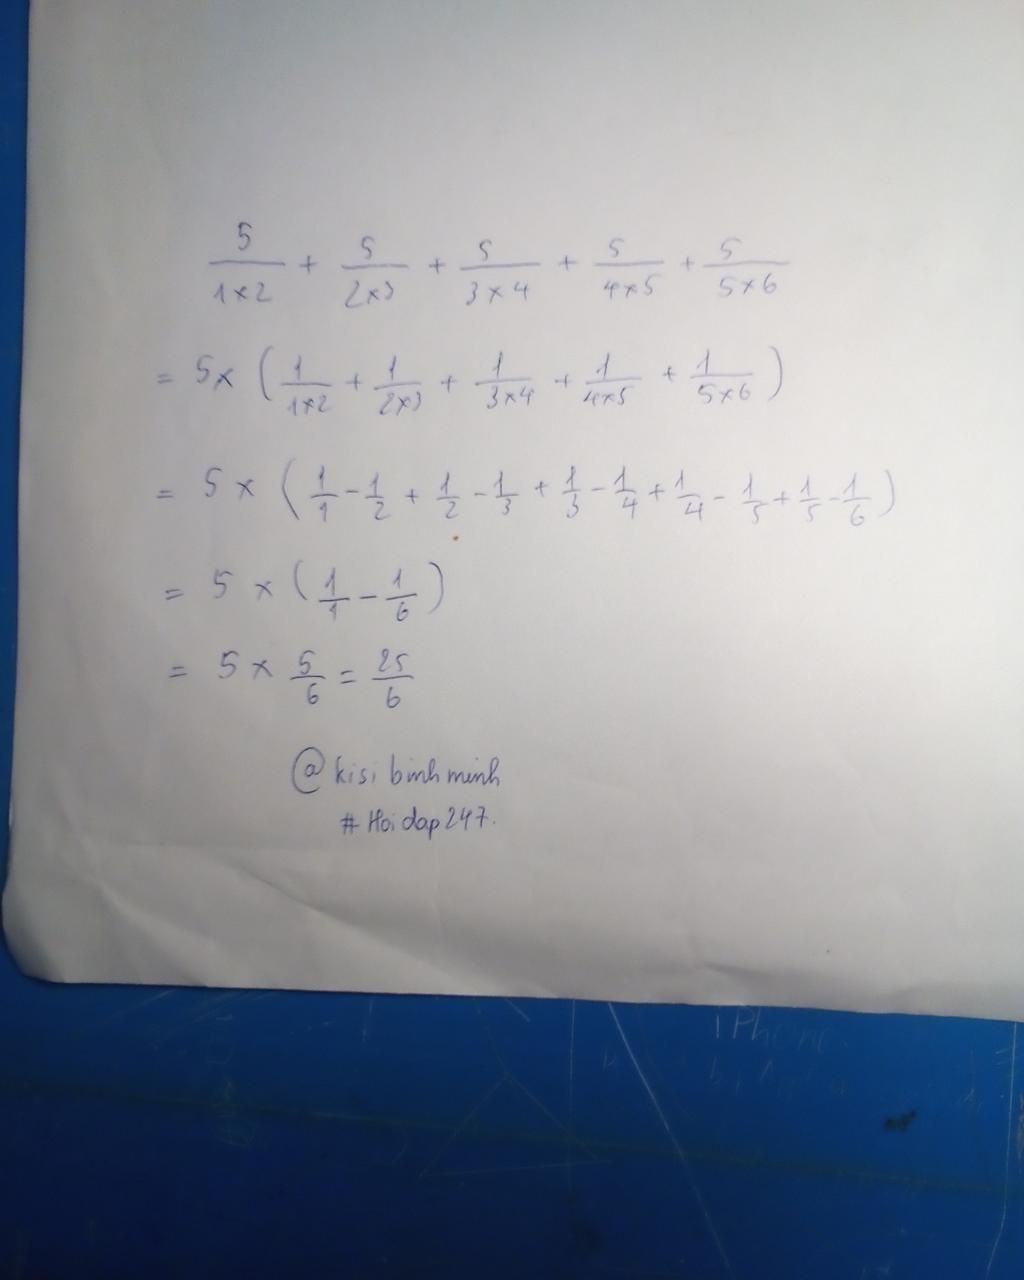 5/(1×2) + 5/(2×3) + 5/(3×4) + 5/(4×5) + 5/(5×6)
= 5× (1/(1×2) + 1/(2×3) + 1/(3×4) + 1/(4×5) + 1/(5×6))
= 5 × (1/1 - 1/2 + 1/2 - 1/3 + 1/3 - 1/4 + 1/4 - 1/5 + 1/5 - 1/6)
= 5 × (1/1 - 1/6)
= 5 × 5/6 = 25/6
@kisi binh minh
#Hoidap247.
iPhone